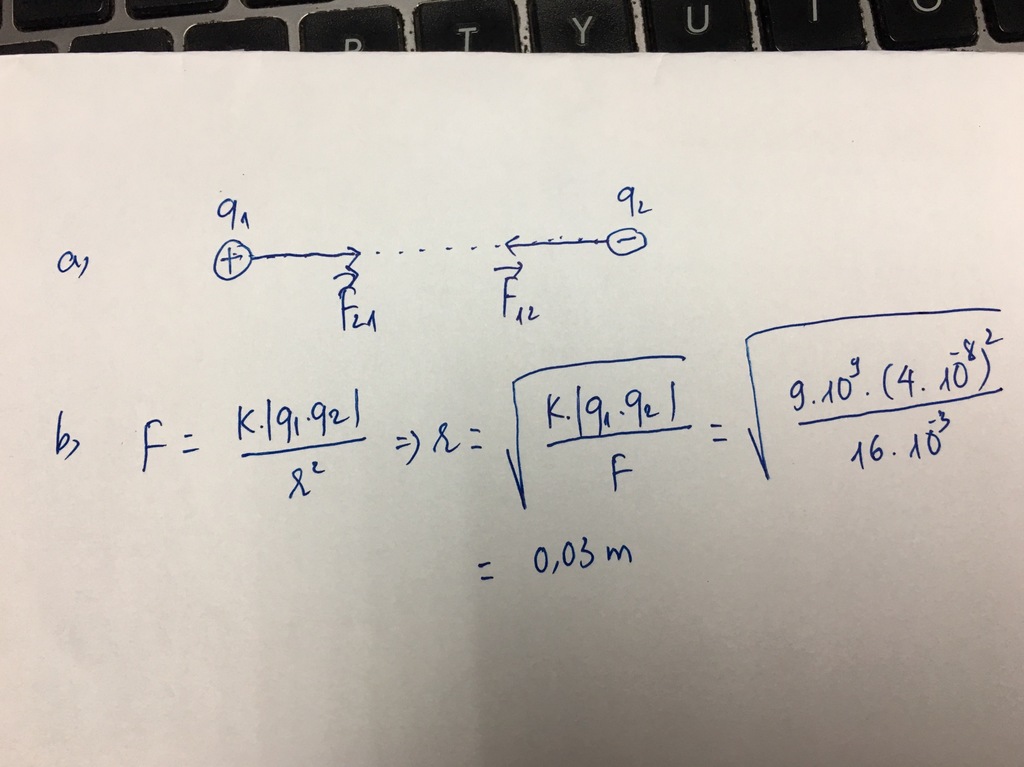 R T Y U I O
q₁ q₂
a, + -
F⃗₂₁ F⃗₁₂
b, F = K.|q₁.q₂| / r² => r = √(K.|q₁.q₂| / F) = √(9.10⁹.(4.10⁻⁸)² / 16.10⁻³)
= 0,03 m